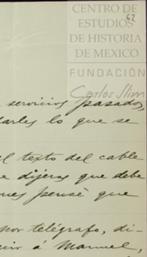 CENTRO DE
ESTUDIOS
DE HISTORIA
DE MEXICO
62
FUNDACIÓN
Carlos Slim
servicios pasados,
darles lo que se
el texto del cable
dijeras que debe
pensé que
por telégrafo, di-
á Manuel,